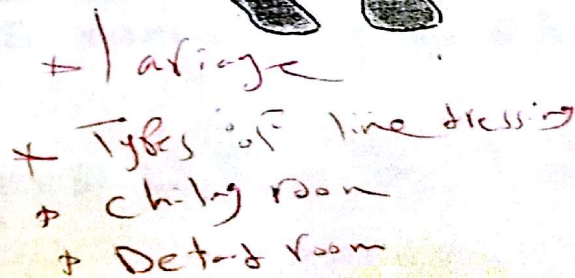 + lariage
+ Types of line dressing
+ Chilng room
+ Detand room